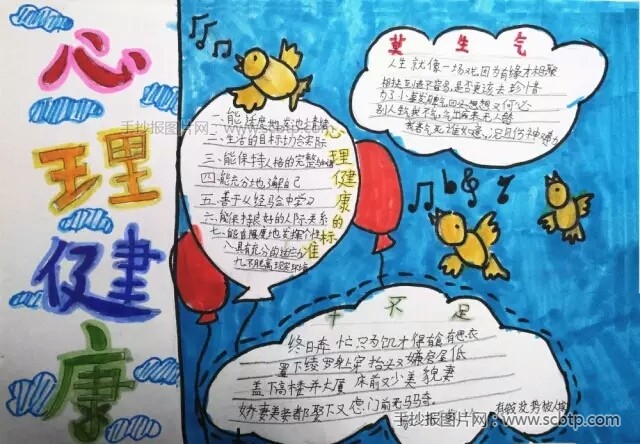 心
理
健
康
手抄报图片网：www.scbtp.com
一、能适度地发泄情绪
二、生活的目标切合实际
三、能保持人格的完整和谐
四、能充分地了解自己
五、善于从经验中学习
六、能保持良好的人际关系
七、能有限度地发挥个性
八具有充分的适应力
九不脱离现实环境
心理健康的标准
莫生气
人生就像一场戏因为有缘才相聚
相扶到老不容易是否更该去珍惜
为了小事发脾气回头想想又何必
别人生气我不气气出病来无人替
我若气死谁如意况且伤神又费力
十不足
终日奔忙只为饥才得有食有思衣
置下绫罗身上穿抬头又嫌房屋低
盖下高楼并大厦床前又少美貌妻
娇妻美妾都娶下又虑门前无马骑
手抄报图片网：www.scbtp.com